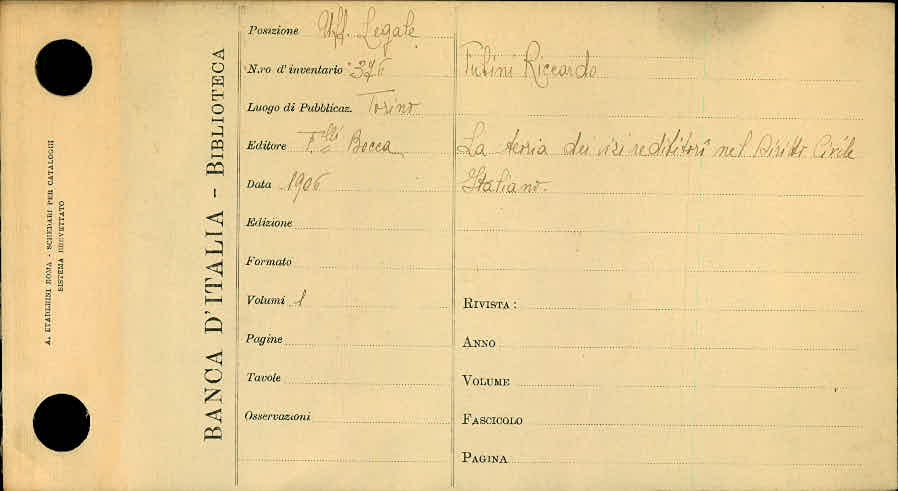 A. STADERINI ROMA - SCHEDARI PER CATALOGHI
SISTEMA BREVETTATO
BANCA D'ITALIA - BIBLIOTECA
Posizione Uff. Legale
N.ro d'inventario 376
Luogo di Pubblicaz. Torino
Editore F.lli Bocca
Data 1906
Edizione
Formato
Volumi 1
Pagine
Tavole
Osservazioni
Fubini Riccardo
La teoria dei vizi redibitori nel Diritto Civile
Italiano.
RIVISTA :
ANNO
VOLUME
FASCICOLO
PAGINA